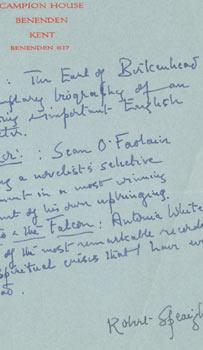 CAMPION HOUSE
BENENDEN
KENT
BENENDEN 617
: The Earl of Birkenhead
biography of an
important English
: Sean O'Faolain
a novelist's selective
in a most winning
of his own upbringing.
& the Falcon: Antonia White
of the most remarkable records
spiritual crises that I have
Robert Speaigh